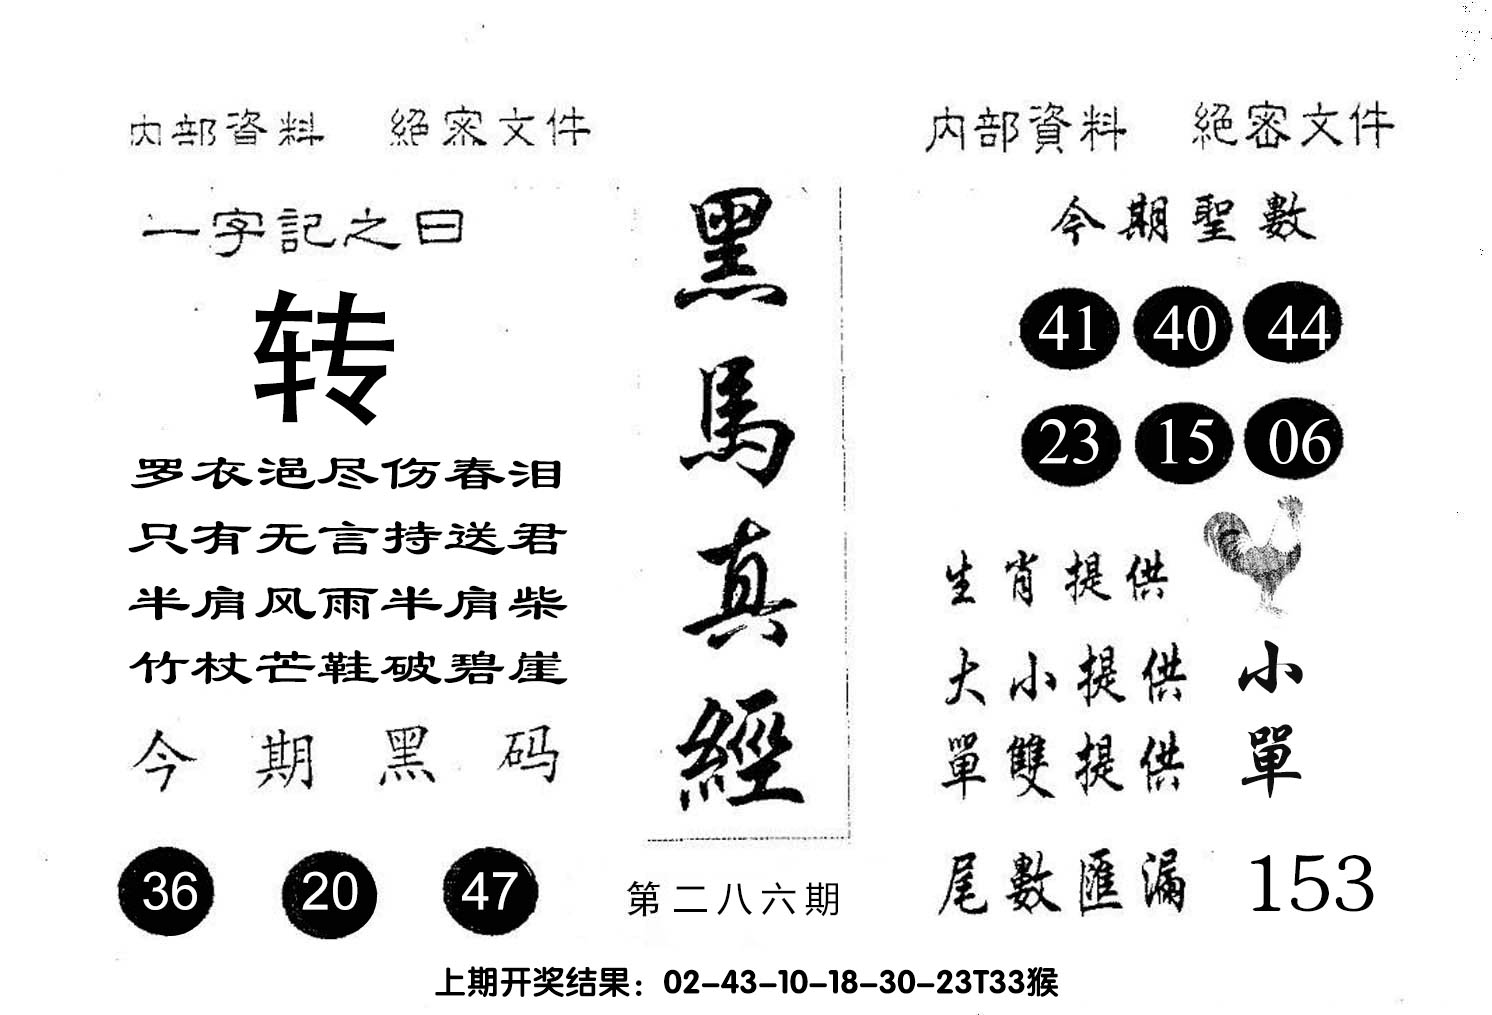 内部資料 絕密文件
一字記之曰
转
罗衣浥尽伤春泪
只有无言持送君
半肩风雨半肩柴
竹杖芒鞋破碧崖
今期黑码
36 20 47
黑馬真經
第二八六期
内部資料 絕密文件
今期聖數
41 40 44
23 15 06
生肖提供
大小提供 小
單雙提供 單
尾數匯漏 153
上期开奖结果：02-43-10-18-30-23T33猴